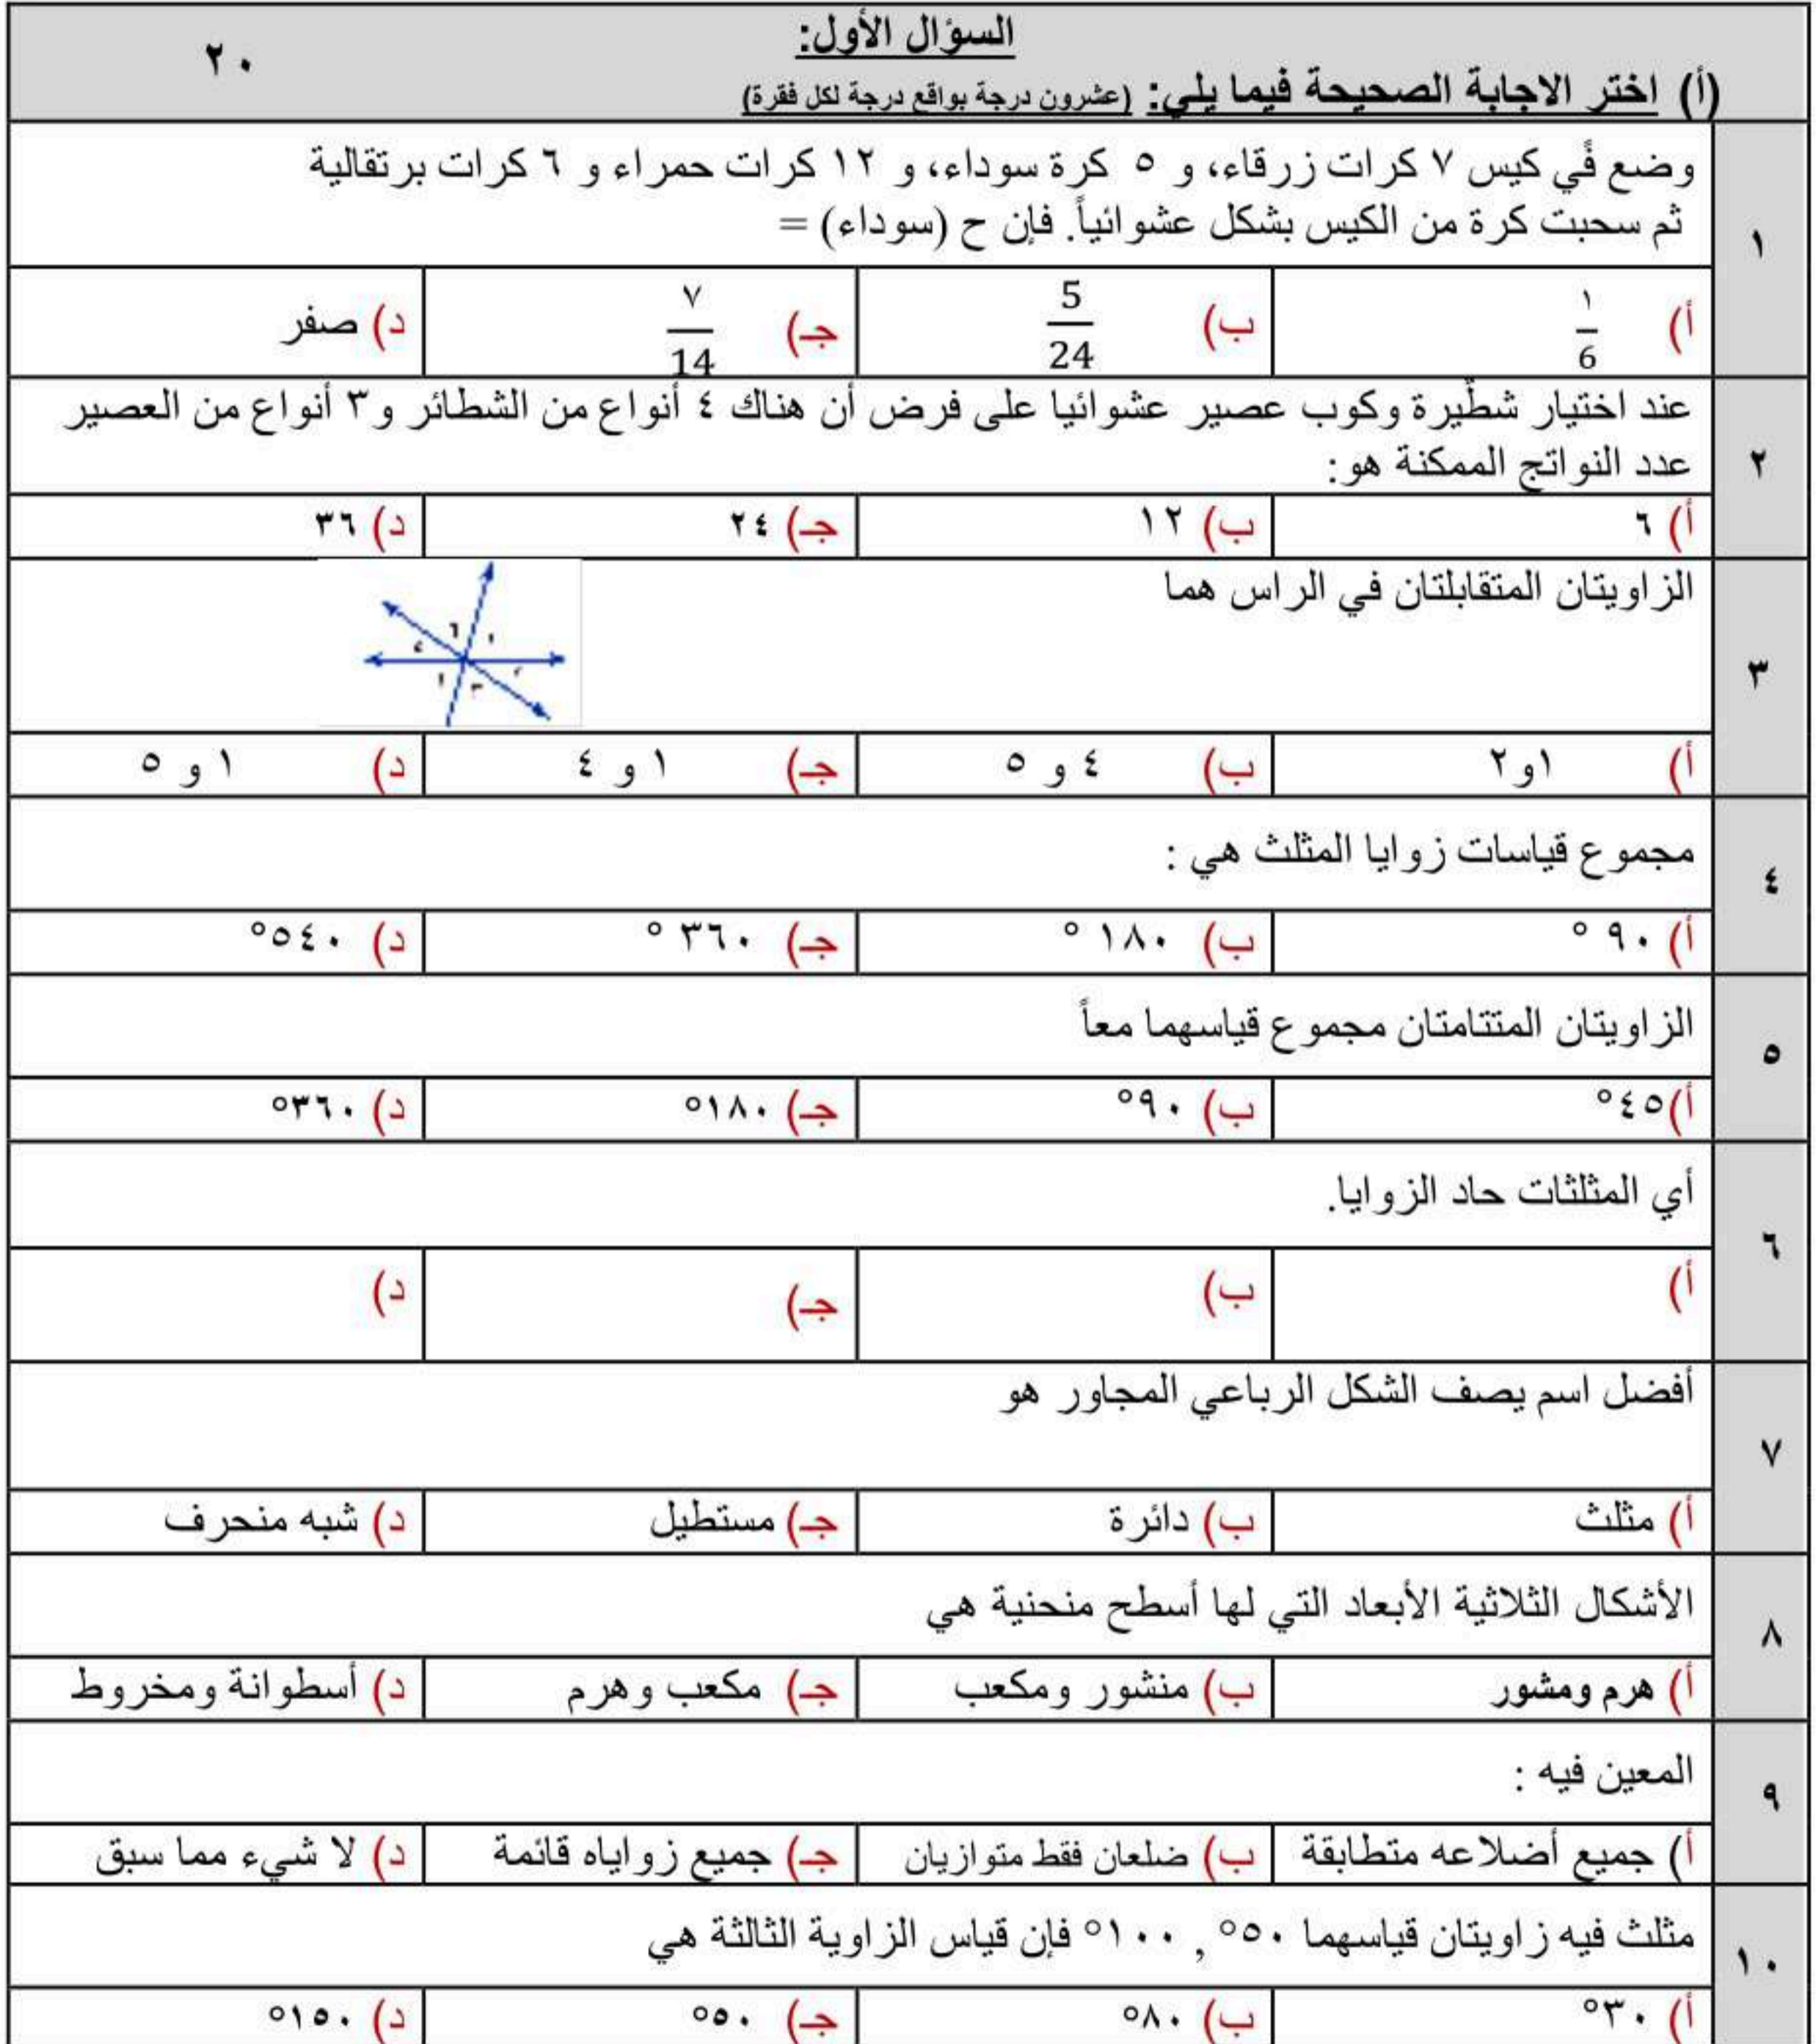 السؤال الأول:
٢٠
(أ) اختر الاجابة الصحيحة فيما يلي: (عشرون درجة بواقع درجة لكل فقرة)
١
وضع في كيس ٧ كرات زرقاء، و ٥ كرة سوداء، و ١٢ كرات حمراء و ٦ كرات برتقالية
ثم سحبت كرة من الكيس بشكل عشوائياً. فإن ح (سوداء) =
أ) ١/6 ب) 5/24 جـ) ٧/14 د) صفر
٢
عند اختيار شطيرة وكوب عصير عشوائيا على فرض أن هناك ٤ أنواع من الشطائر و٣ أنواع من العصير
عدد النواتج الممكنة هو:
أ) ٦ ب) ١٢ جـ) ٢٤ د) ٣٦
٣
الزاويتان المتقابلتان في الراس هما
أ) ١و٢ ب) ٤ و ٥ جـ) ١ و ٤ د) ١ و ٥
٤
مجموع قياسات زوايا المثلث هي :
أ) ٩٠ ° ب) ١٨٠ ° جـ) ٣٦٠ ° د) ٥٤٠°
٥
الزاويتان المتتامتان مجموع قياسهما معاً
أ)٤٥° ب) ٩٠° جـ) ١٨٠° د) ٣٦٠°
٦
أي المثلثات حاد الزوايا.
أ) ب) جـ) د)
٧
أفضل اسم يصف الشكل الرباعي المجاور هو
أ) مثلث ب) دائرة جـ) مستطيل د) شبه منحرف
٨
الأشكال الثلاثية الأبعاد التي لها أسطح منحنية هي
أ) هرم ومشور ب) منشور ومكعب جـ) مكعب وهرم د) أسطوانة ومخروط
٩
المعين فيه :
أ) جميع أضلاعه متطابقة ب) ضلعان فقط متوازيان جـ) جميع زواياه قائمة د) لا شيء مما سبق
١٠
مثلث فيه زاويتان قياسهما ٥٠° , ١٠٠° فإن قياس الزاوية الثالثة هي
أ) ٣٠° ب) ٨٠° جـ) ٥٠° د) ١٥٠°